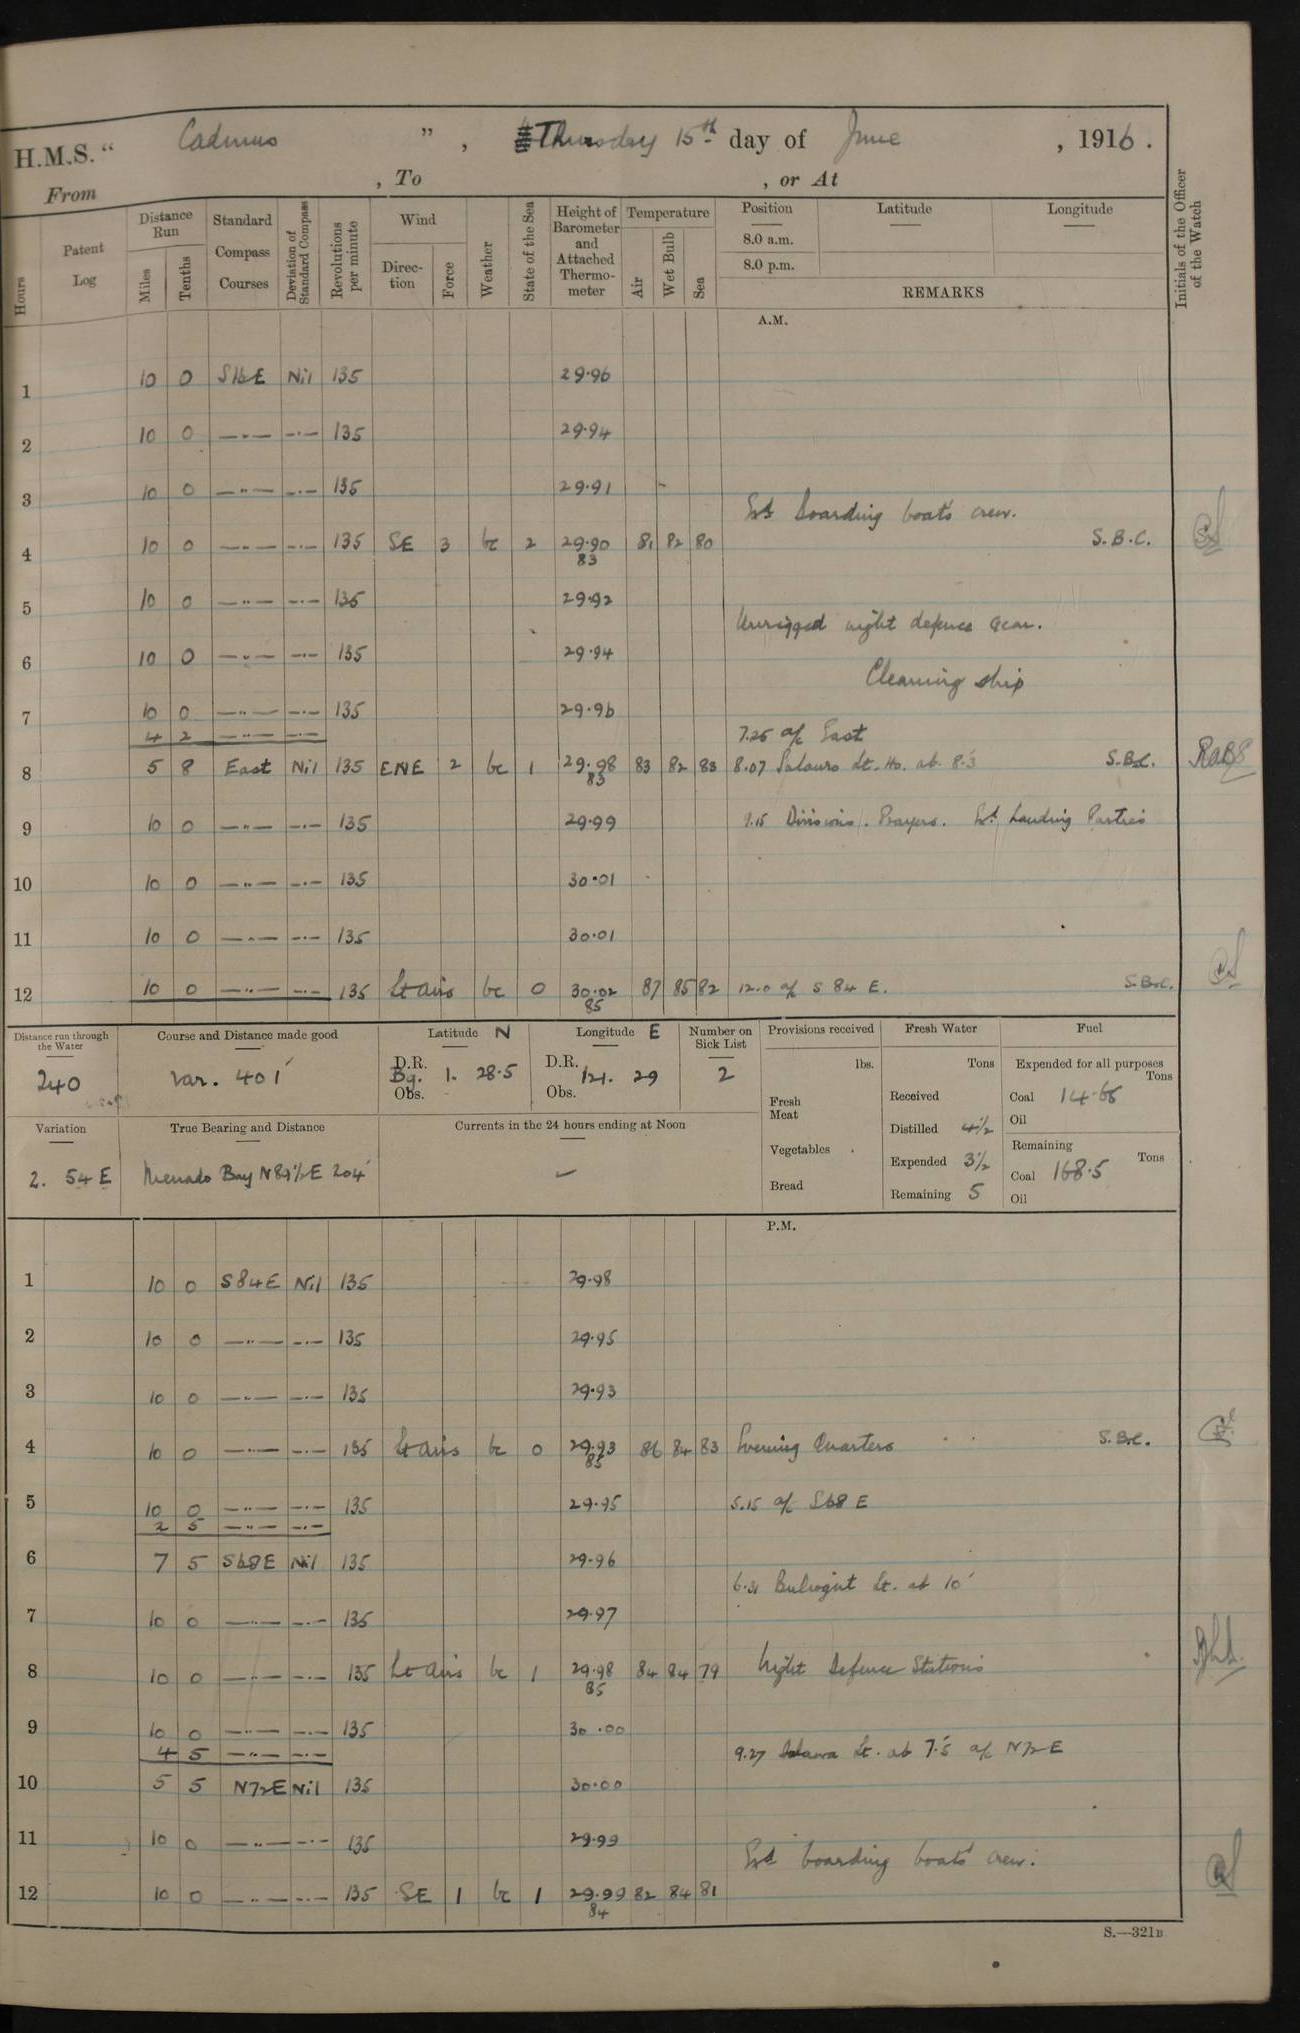 H.M.S. " Cadmus ", Thursday 15th day of June, 1916.
From , To , or At
Hours
Patent Log
Distance Run
Miles
Tenths
Standard Compass Courses
Deviation of Standard Compass
Revolutions per minute
Wind
Direction
Force
Weather
State of the Sea
Height of Barometer and Attached Thermometer
Temperature
Air
Wet Bulb
Sea
Position
Latitude
Longitude
8.0 a.m.
8.0 p.m.
REMARKS
Initials of the Officer of the Watch
A.M.
1 10 0 S16E Nil 135 29.96
2 10 0 —"— —"— 135 29.94
3 10 0 —"— —"— 135 29.91
Exd boarding boat's crew.
4 10 0 —"— —"— 135 SE 3 bc 2 29.90 83 81 82 80 S.B.C.
5 10 0 —"— —"— 135 29.92
Unrigged night defence gear.
6 10 0 —"— —"— 135 29.94
Cleaning ship
7 10 0 —"— —"— 135 29.96
4 2 —"— —"— 7.25 a/c East
8 5 8 East Nil 135 ENE 2 bc 1 29.98 83 83 82 83 8.07 Lt. Ho. ab. 8.3' S.B.C.
9 10 0 —"— —"— 135 29.99 9.15 Divisions. Prayers. Exd Landing Parties
10 10 0 —"— —"— 135 30.01
11 10 0 —"— —"— 135 30.01
12 10 0 —"— —"— 135 Lt airs bc 0 30.02 85 87 85 82 12.0 a/c S 84 E. S.B.C.
Distance run through the Water
240
Course and Distance made good
Var. 401'
Latitude N
D.R.
Bg. 1. 28.5
Obs.
Longitude E
D.R.
121. 29
Obs.
Number on Sick List
2
Provisions received
lbs.
Fresh Meat
Vegetables
Bread
Fresh Water
Tons
Received
Distilled 4½
Expended 3½
Remaining 5
Fuel
Expended for all purposes
Tons
Coal 14.65
Oil
Remaining
Tons
Coal 168.5
Oil
Variation
2. 54 E
True Bearing and Distance
Menado Bay N89½E 204'
Currents in the 24 hours ending at Noon
—
P.M.
1 10 0 S84E Nil 135 29.98
2 10 0 —"— —"— 135 29.95
3 10 0 —"— —"— 135 29.93
4 10 0 —"— —"— 135 Lt airs bc 0 29.93 85 86 84 83 Evening Quarters S.B.C.
5 10 0 —"— —"— 135 29.95 5.15 a/c S68E
2 5 —"— —"—
6 7 5 S68E Nil 135 29.96
6.31 Lt. ab 10'
7 10 0 —"— —"— 135 29.97
8 10 0 —"— —"— 135 Lt airs bc 1 29.98 85 84 84 79 Night Defence Stations
9 10 0 —"— —"— 135 30.00
4 5 —"— —"— 9.27 Lt. ab 7.5 a/c N72E
10 5 5 N72E Nil 135 30.00
11 10 0 —"— —"— 135 29.99
Exd boarding boat's crew.
12 10 0 —"— —"— 135 SE 1 bc 1 29.99 84 82 84 81
S.—321B